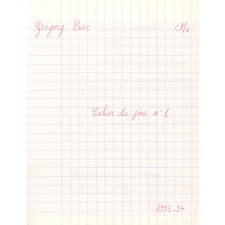 Grégory CM1
Cahier du jour n°1
1993-94